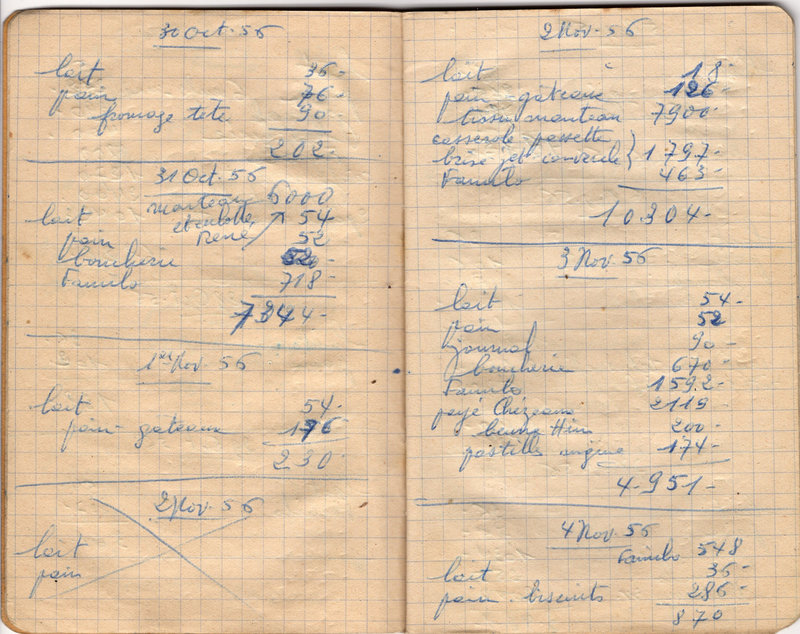 30 Oct. 56
lait 36-
pain 76-
fromage tete 90-
202-
31 Oct. 56
manteau 6000
et culotte
René
lait 54
pain 52
boucherie 520-
Familo 718-
7344-
1er Nov. 56
lait 54-
pain gateaux 176
230-
2 Nov. 56
lait
pain
2 Nov. 56
lait 18-
pain - gâteaux 126-
tissu manteau 7900-
casserole passette
brise jet couvercle } 1797-
Familo 463-
10.304-
3 Nov 56
lait 54-
pain 52
journal 90-
boucherie 670-
Familo 1592-
payé 2119-
200-
pastille angine 174-
4.951-
4 Nov. 56
Familo 548
lait 36-
pain - biscuits 286-
870